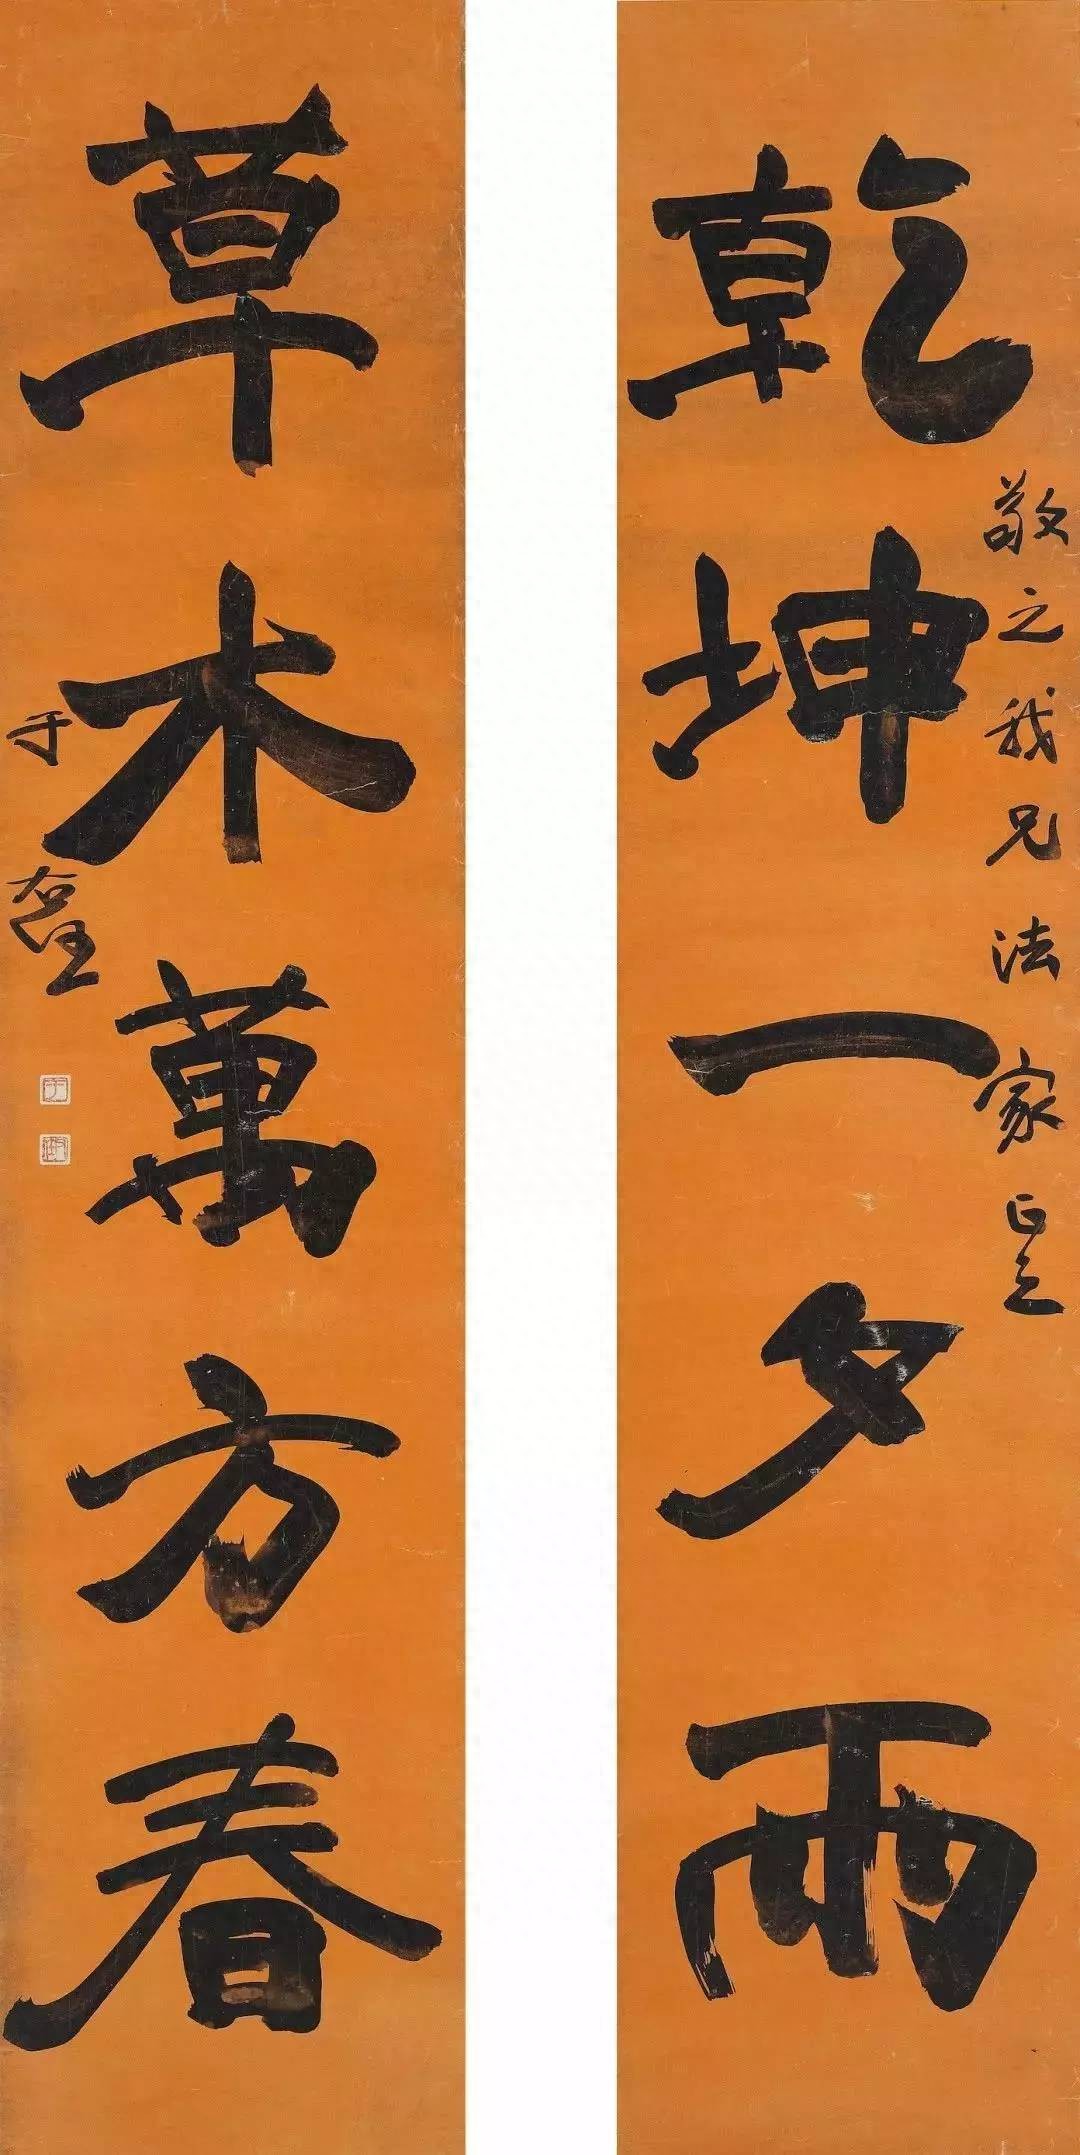 乾坤一夕雨
敬之我兄法家正之
草木萬方春
于右任